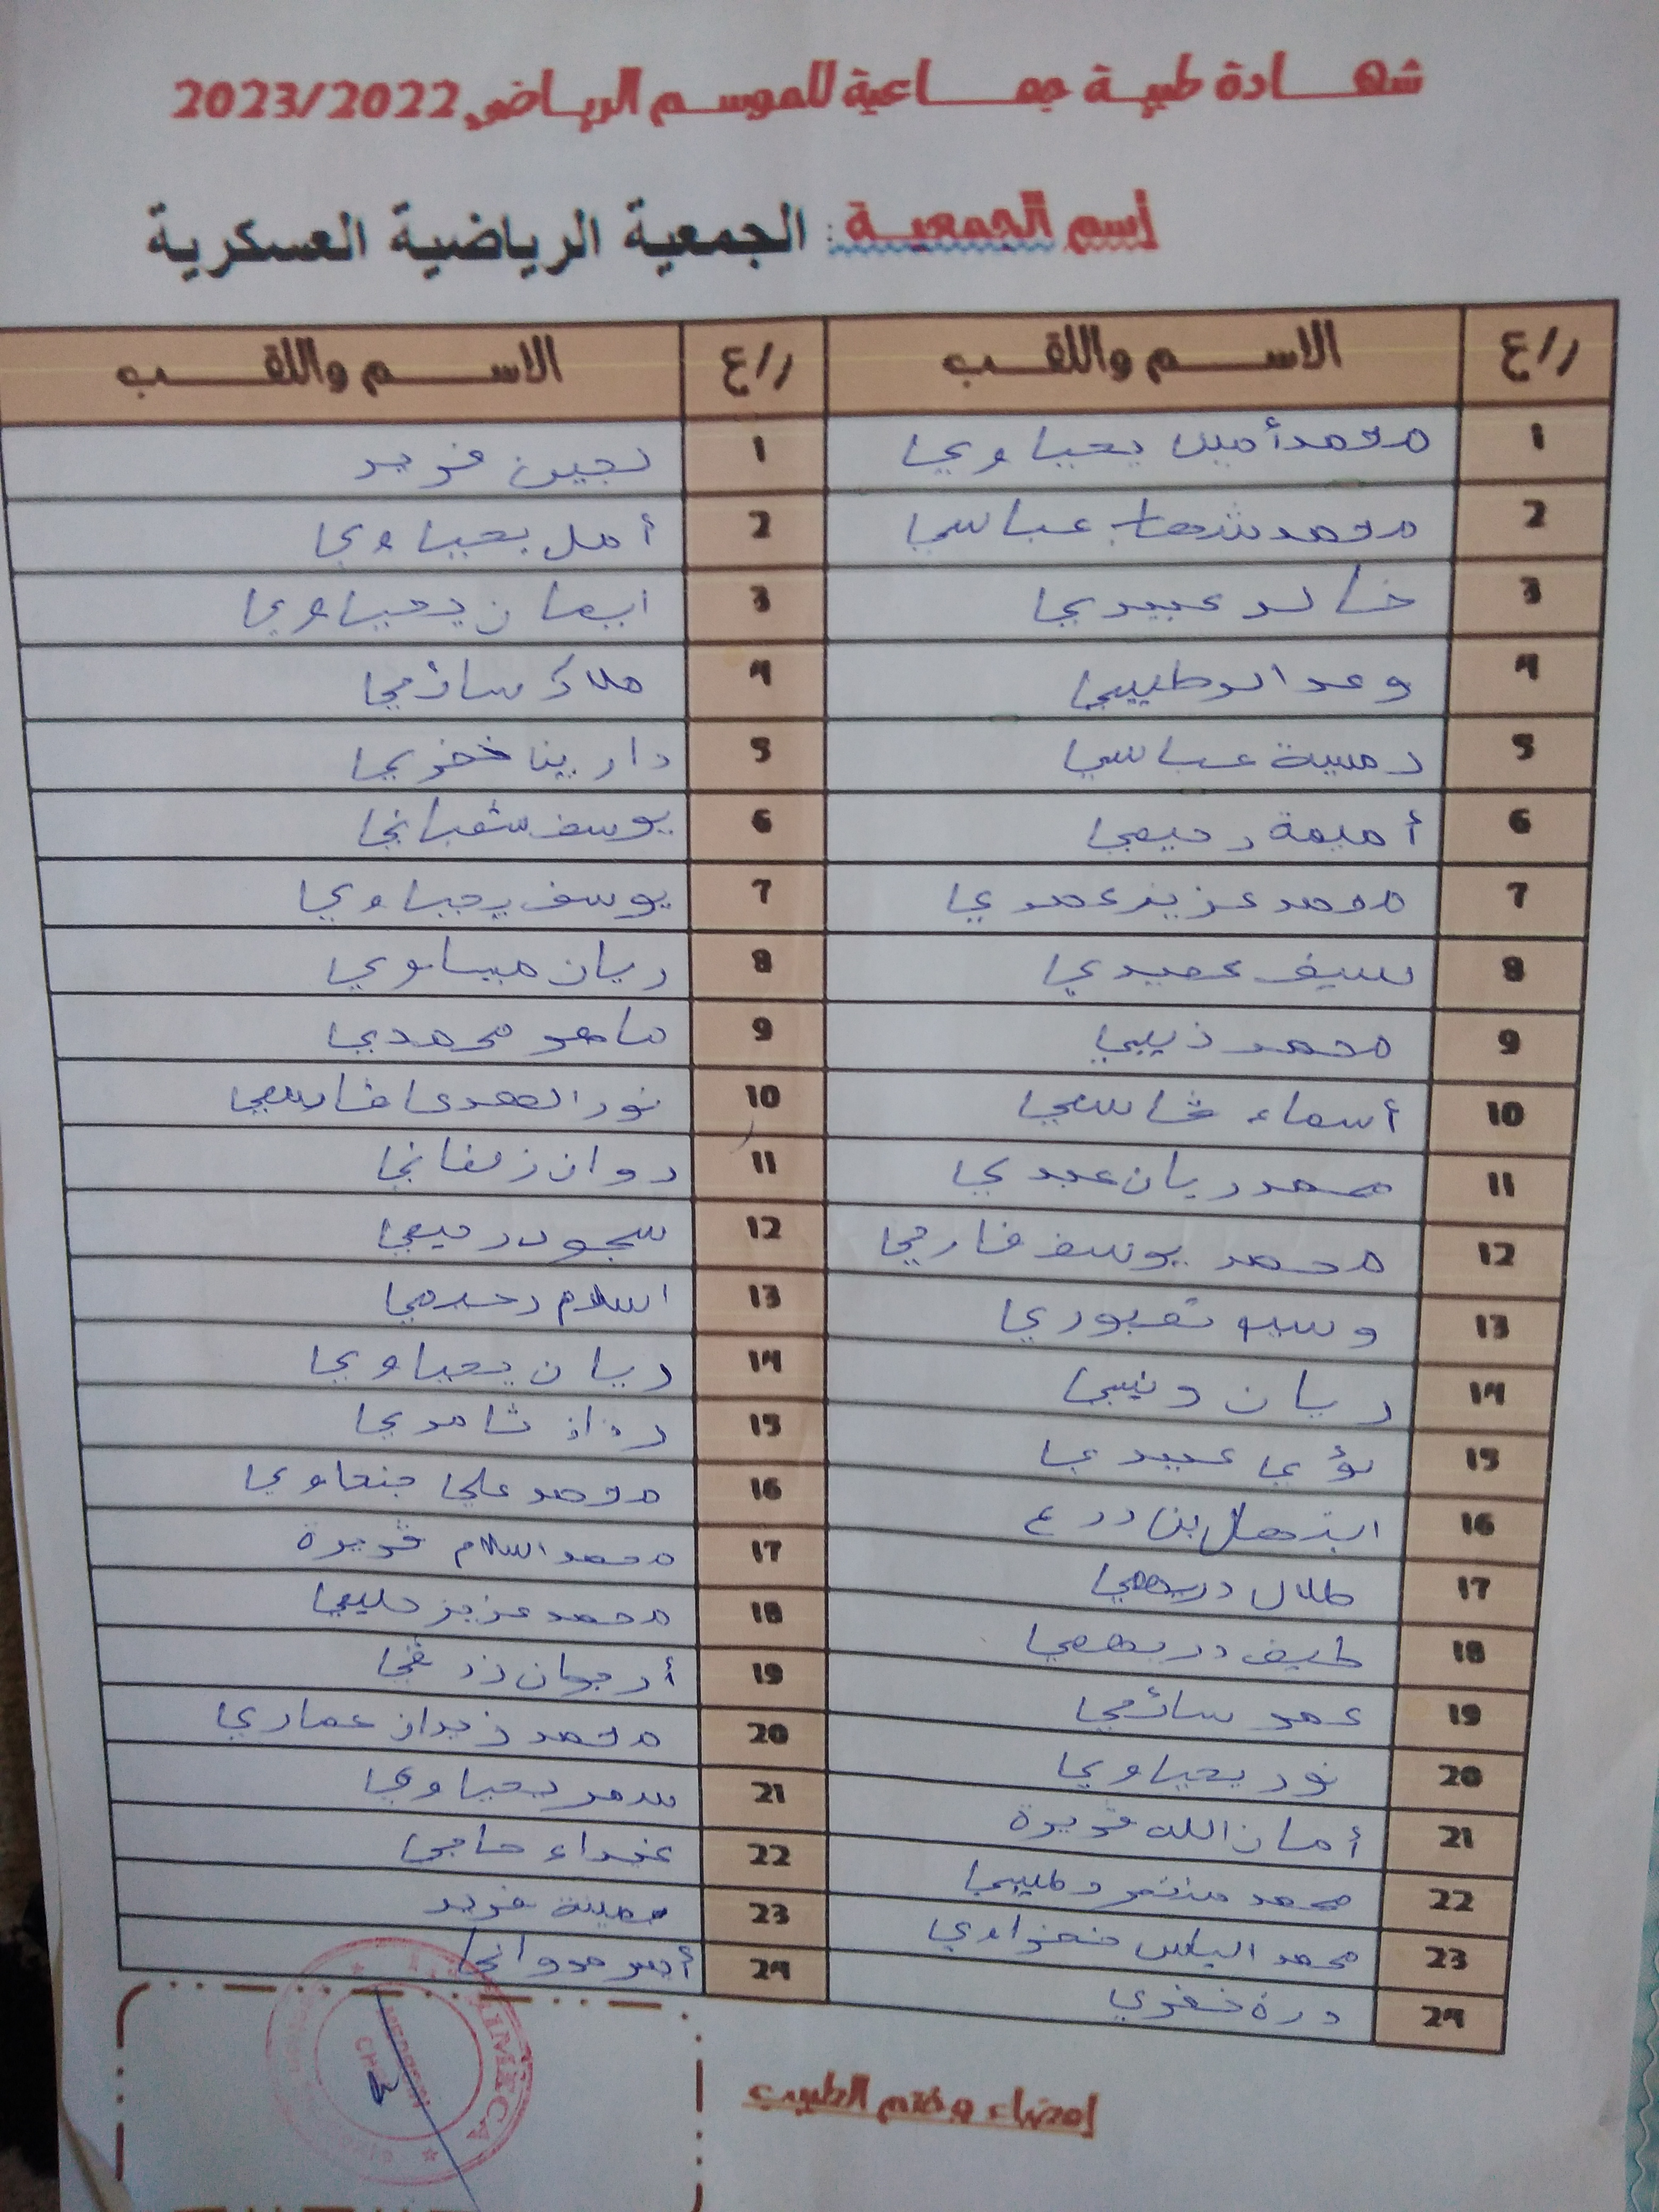 شهادة طبية جماعية للموسم الرياضي 2023/2022
إسم الجمعية : الجمعية الرياضية العسكرية
ر/ع الاسم واللقب ر/ع الاسم واللقب
1 محمد أمين يحياوي 1 لجين فريد
2 محمد شهاب عباسي 2 أمل يحياوي
3 خالد عبيدي 3 ايمان يحياوي
4 وعد الوطيبي 4 ملاك سائمي
5 عباسي 5 دارين خضري
6 أميمة رحيمي 6 يوسف شعباني
7 محمد عزيز عمدي 7 يوسف يحياوي
8 سيف عبيدي 8 ريان ميساوي
9 محمد ذيبي 9 ماهر محمدي
10 أسماء قاسمي 10 نور الهدى قاسمي
11 محمد ريان عبدي 11 روان زلفاني
12 محمد يوسف فارحي 12 سجود رحيمي
13 تعبوري 13 اسلام رحيمي
14 ريان 14 ريان يحياوي
15 لؤي عبيدي 15 ثامري
16 ابتهال بن درع 16 محمد علي جنحاوي
17 طلال دريهمي 17 محمد اسلام قويرة
18 طيف دريهمي 18 محمد عزيز حليمي
19 سائمي 19 أرجوان زرقي
20 نور يحياوي 20 محمد زيدان عماري
21 أمان الله قويرة 21 سمر يحياوي
22 محمد منتصر وطيبي 22 غيداء حاجي
23 محمد الياس خضراوي 23 فريد
24 درة خضري 24
إمضاء وختم الطبيب